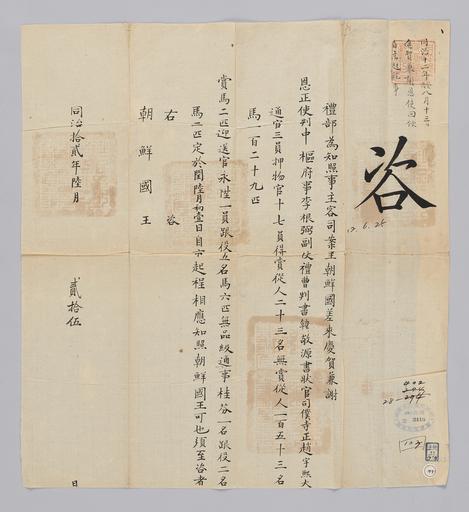 咨
禮部為知照事主客司案呈朝鮮國差來慶賀兼謝
恩正使判中樞府事李根弼副使禮曹判書韓敬源書狀官司僕寺正趙宇熙大
通官三員押物官十七員得賞從人二十三名無賞從人一百五十三名
馬一百二十九匹
賞馬二匹迎送官永陞一員跟役五名馬六匹無品級通事桂芬一名跟役二名
馬二匹定於閏陸月初壹日自京起程相應知照朝鮮國王可也須至咨者
右咨
朝鮮國王
同治拾貳年陸月 貳拾伍 日
12.6.25